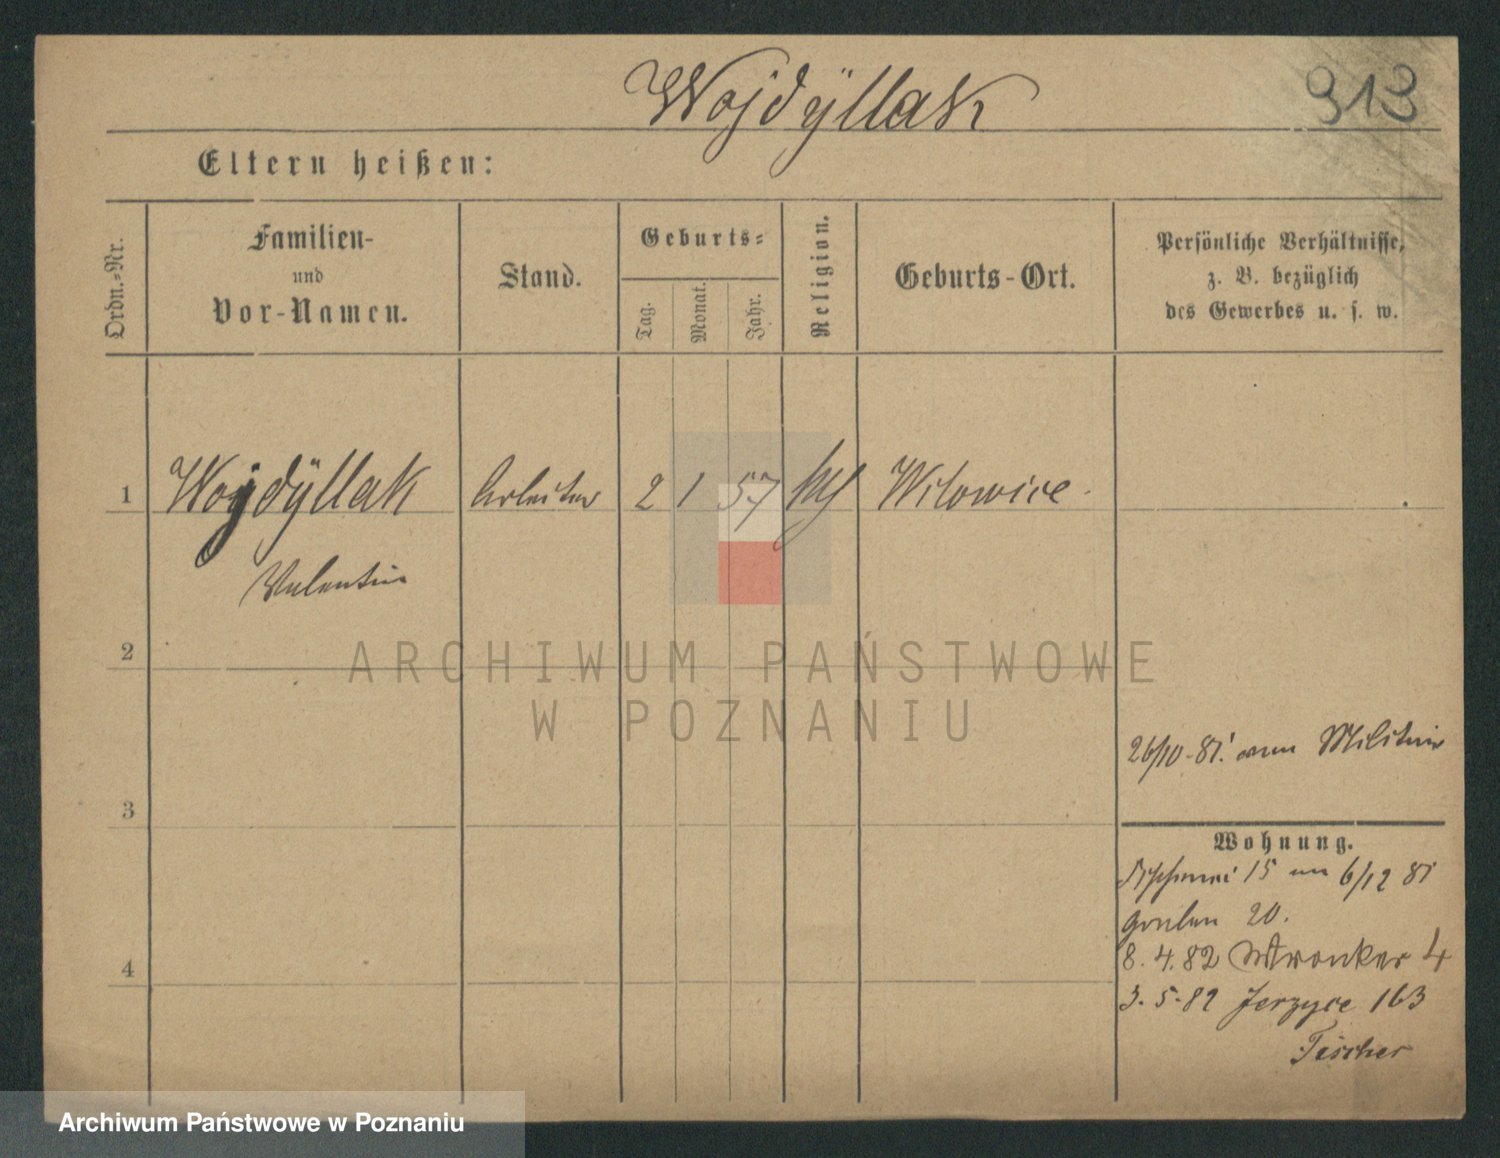 Wojdÿllak
313
Eltern heißen:
Ordn.=Nr.
Familien-
und
Vor-Namen.
Stand.
Geburts=
Tag.
Monat.
Jahr.
Religion.
Geburts-Ort.
Persönliche Verhältnisse,
z. B. bezüglich
des Gewerbes u. s. w.
1
Wojdÿllak
Arbeiter
2
1
57
kth
Witowice
Valentin
2
ARCHIWUM PAŃSTWOWE
W POZNANIU
26/10-81. vom Militair
3
Wohnung.
15 6/12 81
Graben 20.
8. 4. 82 Wronker 4
4
3. 5. 82 Jerzyce 163
Fischer
Archiwum Państwowe w Poznaniu